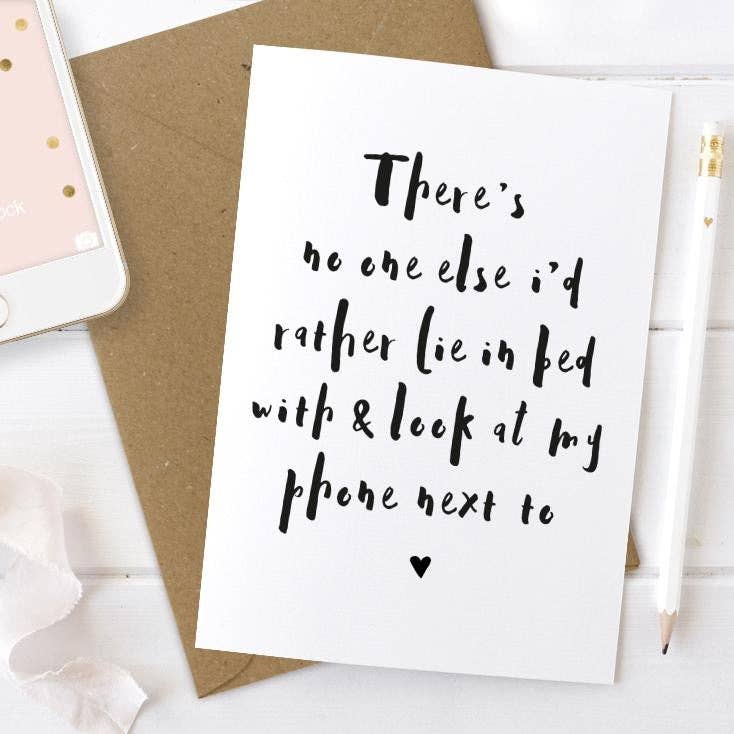 There's
no one else i'd
rather lie in bed
with & look at my
phone next to